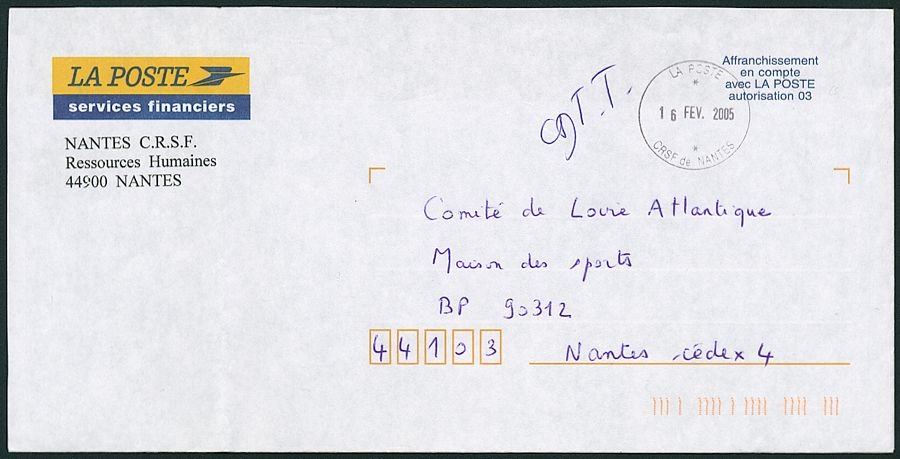 LA POSTE
services financiers
NANTES C.R.S.F.
Ressources Humaines
44900 NANTES
Affranchissement
en compte
avec LA POSTE
autorisation 03
LA POSTE
16 FEV. 2005
CRSF de NANTES
Comité de Loire Atlantique
Maison des sports
BP 90312
44103 Nantes cédex 4